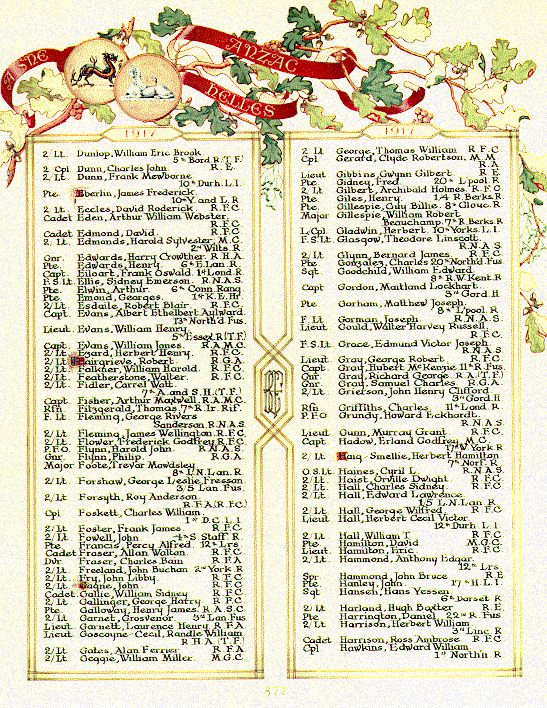 AISNE
ANZAC
HELLES
1917
2 Lt. Dunlop, William Eric Brook
5th Bord. R. (T.F.)
2 Cpl Dunn, Charles John R.E.
2/ Lt. Dunn, Frank Mewborne
10th Durh. L.I.
Pte. Eberlin, James Frederick
10th Y. and L. R
2/ Lt. Eccles, David Roderick R.F.C.
Cadet Eden, Arthur William Webster
R.F.C.
Cadet Edmond, David R.F.C.
2/ Lt. Edmonds, Harold Sylvester M.C.
2nd Wilts R.
Gnr. Edwards, Harry Crowther R.H.A.
Pte. Edwards, Henry 6th E. Lan. R.
Capt. Eiloart, Frank Oswald 1st Lond. R.
F.S.Lt. Ellis, Sidney Emerson R.N.A.S.
Pte. Elwin, Arthur 6th Conn. Rang
Pte. Emond, Georges 1st K.E. Hr.
2/ Lt. Esdaile, Robert Blair R.F.C.
Capt. Evans, Albert Ethelbert Aylward
13th North'd Fus.
Lieut Evans, William Henry
5th Essex R. (T.F.)
Capt. Evans, William Jones R.A.M.C.
2/ Lt. Ezard, Herbert Henry R.F.C.
2/ Lt. Fairgrieve, Robert R.G.A.
2/ Lt. Falkner, William Harold R.F.C.
2/ Lt. Featherstone, Walter R.F.C.
2/ Lt. Fidler, Carrel Watt
7th A. and S.H. (T.F.)
Capt Fisher, Arthur Maxwell R.A.M.C.
Rfn Fitzgerald, Thomas 7th R. Ir. Rif.
F. Lt Fleming, George Rivers
Sanderson R.N.A.S.
2/ Lt Fleming, James Wellington R.F.C.
2/ Lt Flower, Frederick Godfrey R.F.C.
P.F.O. Flynn, Harold John R.N.A.S.
Gnr. Flynn, Philip R.G.A.
Major Foote, Trevor Mawdsley
8th L.N. Lan. R.
2/ Lt Forshaw, George Leslie Fresson
3/5 Lan. Fus.
2/ Lt Forsyth, Roy Anderson
R.F.A. (R.F.C.)
Cpl Foskett, Charles William
1st D.C.L.I.
2/ Lt Foster, Frank James R.F.C.
2/ Lt Fowell, John 4th S. Staff R
Pte Francis, Percy Alfred 12th Lrs
Cadet Fraser, Allan Walton R.F.C
Dvr Fraser, Charles Bain R.F.A
2/ Lt Freeland, John Buchan 2nd York R
2/ Lt. Fry, John Libby R.F.C.
2/ Lt. Gagne, John R.F.C.
Cadet Gallie, William Sidney R.F.C.
2/ Lt Gallinger, George Hatry R.F.C.
Pte Galloway, Henry James R.A.S.C.
2/ Lt Garnet, Grosvenor 3rd Lan Fus
Lieut Garnett, Laurence Henry R.F.A
Lieut Gascoyne-Cecil, Randle William
R.H.A. (T.F.)
2/ Lt Gates, Alan Ferrier R.F.A
2/ Lt Geggie, William Miller M.G.C.
1917
2 Lt George, Thomas William R.F.C
Cpl Gerard, Clyde Robertson, M.M.
R.A.
Lieut Gibbins, Gwynn Gilbert R.E.
Pte. Gidney, Fred 20th L'pool R
2/ Lt Gilbert, Archibald Holmes R.F.C
Pte Giles, Henry 1/4 R. Berks R
Pte. Gillespie, Guy Billie 8th Glouc. R
Major Gillespie, William Robert
Beauchamp 7th R. Berks R
L/Cpl Gladwin, Herbert 10th Yorks. L.I.
F.S.Lt Glasgow, Theodore Linscott
R.N.A.S.
2/ Lt Glynn, Bernard James R.F.C
Pte Gonzalez, Charles 20th North'd Fus
Sgt Goodchild, William Edward
8th R.W. Kent R
Capt Gordon, Maitland Lockhart
3rd Gord. H
Pte Gorham, Matthew Joseph
8th L'pool R.
F. Lt Gorman, Joseph R.N.A.S.
Lieut Gould, Walter Harvey Russell
R.F.C.
F.S.Lt Grace, Edmund Victor Joseph
R.N.A.S.
Lieut Gray, George Robert R.F.C.
Capt Gray, Hubert McKenzie 11th R. Fus
Gnr Gray, Richard George R.A. (T.F.)
Gnr Gray, Samuel Charles R.G.A.
2/ Lt Grierson, John Henry Clifford
3rd Gord. H
Rfn Griffiths, Charles 11th Lond R.
P.F.O Grundy, Howard Eckhardt
R.N.A.S.
Lieut Gunn, Murray Grant R.F.C.
Capt Hadow, Erland Godfrey M.C.
17th W. York R
2/ Lt Haig-Smellie, Herbert Hamilton
7th Norf. R.
O.S.Lt Haines, Cyril L. R.N.A.S.
2/ Lt Haist, Orville Dwight R.F.C.
2/ Lt Hall, Charles Sidney R.F.C.
2/ Lt Hall, Edward Lawrence
1/5 L.N. Lan R
2/ Lt Hall, George Wilfred R.F.C.
Lieut Hall, Herbert Cecil Victor
12th Durh. L.I.
2/ Lt Hall, William T R.F.C.
Pte Hamilton, David M.G.C.
Lieut. Hamilton, Eric R.F.C.
2/ Lt Hammond, Anthony Edgar
12th Lrs.
Spr Hammond, John Bruce R.E
Pte Hanley, John 17th H.L.I.
Sgt Hansen, Hans Yessen
6th Dorset R
2/ Lt Harland, Hugh Baxter R.E.
Pte Harrington, Daniel 22nd R. Fus
2/ Lt Harrison, Herbert William
3rd Linc. R
Cadet Harrison, Ross Ambrose R.F.C.
Cpl Hawkins, Edward William
1st North'n R
577